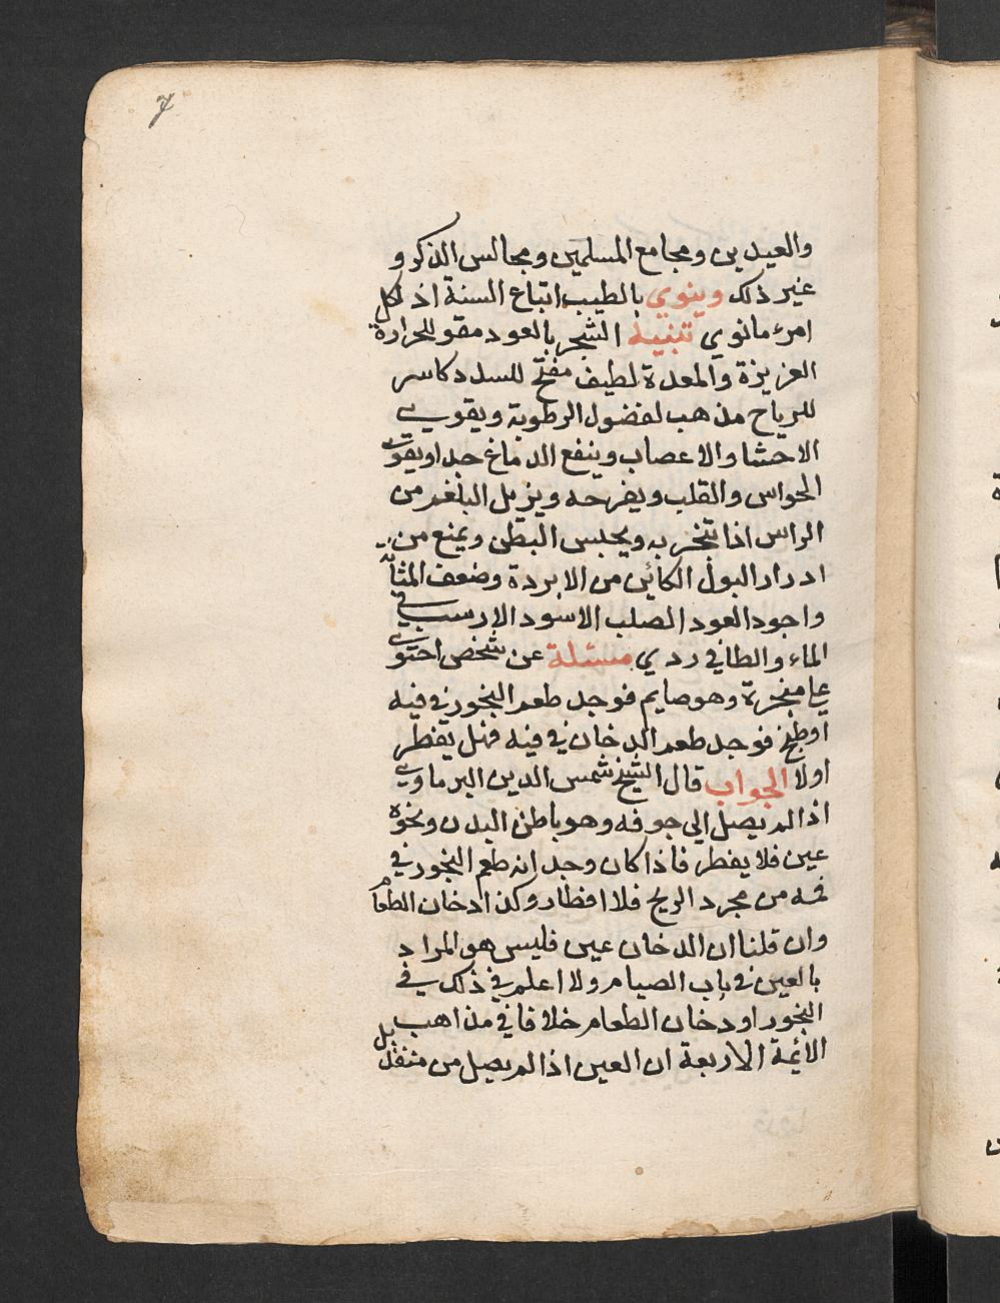 والعيدين ومجامع المسلمين ومجالس الذكر و
غير ذلك وينوي بالطيب اتباع السنة اذ لكل
امرء مانوي تنبيه الشجر بالعود مقو للحرارة
العزيزة والمعدة لطيف مفتح للسدد كاسر
للرياح مذهب لفضول الرطوبة ويقوي
الاحشا والاعصاب وينفع الدماغ جدا ويقوي
الحواس والقلب ويفرحه ويزيل البلغم من
الراس اذا تبخر به ويحبس البطن ويمنع من
ادرار البول الكائن من الابردة وضعف المثانة
واجود العود الصلب الاسود الارسب في
الماء والطافي ردي مسئلة عن شخص احتوي
علي مبخرة وهو صايم فوجد طعم البخور في فيه
اوطبخ فوجد طعم الدخان في فيه فهل يفطر
اولا الجواب قال الشيخ شمس الدين البرماوي
اذا لم يصل الي جوفه وهو باطن البدن ونحوه
عين فلا يفطر فاذا كان وجد انه طعم البخور في
فمه من مجرد الريح فلا افطار وكذا دخان الطعام
وان قلنا ان الدخان عين فليس هو المراد
بالعين في باب الصيام ولا اعلم في ذلك في
البخور او دخان الطعام خلافا في مذاهب
الائمة الاربعة ان العين اذا لم يصل من منفذ بل